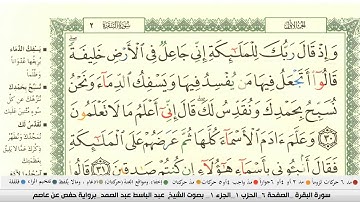 الجزء الأول
سورة البقرة ٢
وَإِذْ قَالَ رَبُّكَ لِلْمَلَٰٓئِكَةِ إِنِّي جَاعِلٌ فِي ٱلْأَرْضِ خَلِيفَةً
قَالُوٓا۟ أَتَجْعَلُ فِيهَا مَن يُفْسِدُ فِيهَا وَيَسْفِكُ ٱلدِّمَآءَ وَنَحْنُ
نُسَبِّحُ بِحَمْدِكَ وَنُقَدِّسُ لَكَ قَالَ إِنِّيٓ أَعْلَمُ مَا لَا تَعْلَمُونَ
٣٠ وَعَلَّمَ ءَادَمَ ٱلْأَسْمَآءَ كُلَّهَا ثُمَّ عَرَضَهُمْ عَلَى ٱلْمَلَٰٓئِكَةِ
فَقَالَ أَنۢبِـُٔونِي بِأَسْمَآءِ هَٰٓؤُلَآءِ إِن كُنتُمْ صَٰدِقِينَ ٣١
يَسْفِكُ الدِّمَاءَ
نُسَبِّحُ بِحَمْدِكَ
نُقَدِّسُ لَكَ
سورة البقرة _ الصفحة ٦_ الحزب ١_ الجزء ١_ بصوت الشيخ عبد الباسط عبد الصمد _برواية حفص عن عاصم